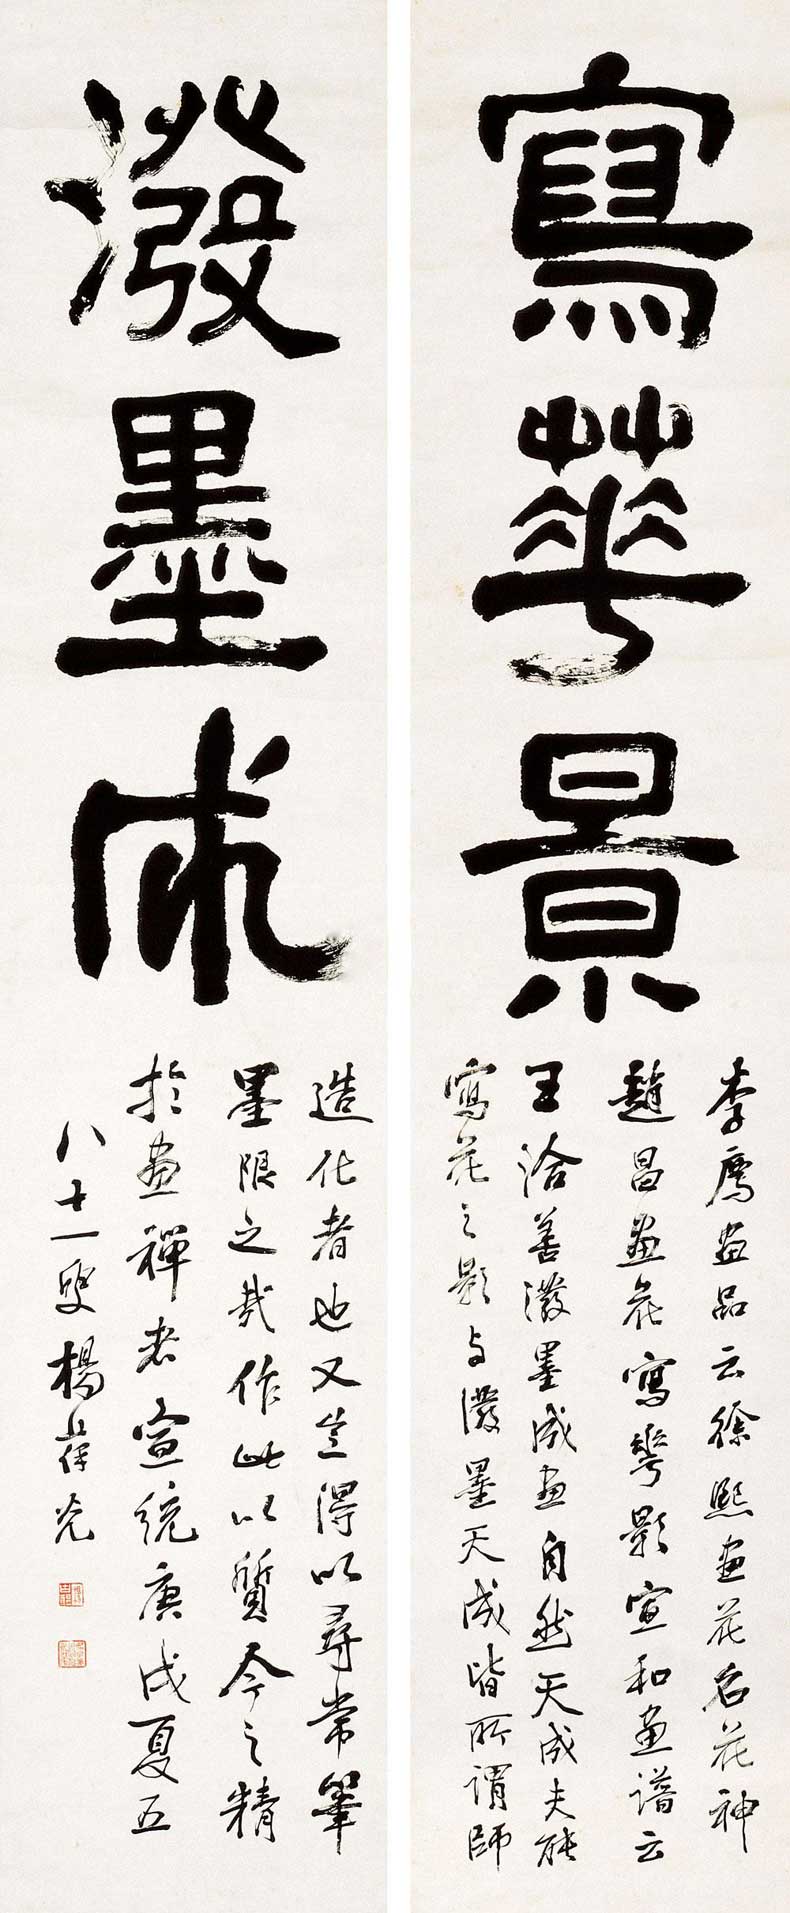 寫華景
李廌畫品云徐熙畫花名花神
趙昌畫花寫華影宣和畫譜云
王洽善潑墨成畫自然天成夫能
寫花之影与潑墨天成皆所謂師
潑墨成
造化者也又豈得以尋常筆
墨限之哉作此以質今之精
於畫禪者宣統庚戌夏五
八十一叟楊葆光